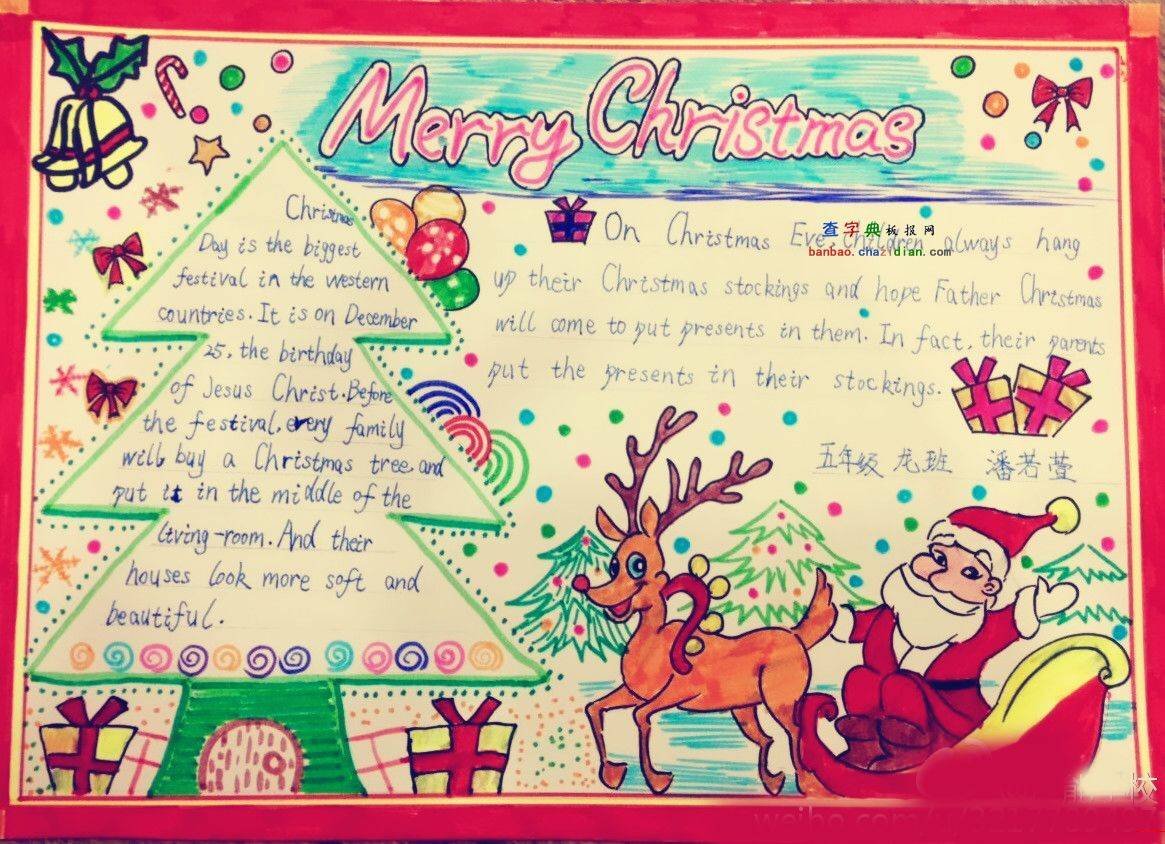 Merry Christmas
Christmas
Day is the biggest
festival in the western
countries. It is on December
25, the birthday
of Jesus Christ. Before
the festival, every family
will buy a Christmas tree and
put it in the middle of the
living-room. And their
houses look more soft and
beautiful.
On Christmas Eve, children always hang
up their Christmas stockings and hope Father Christmas
will come to put presents in them. In fact, their parents
put the presents in their stockings.
查字典板报网
banbao.chazidian.com
五年级 龙班 潘若萱
校